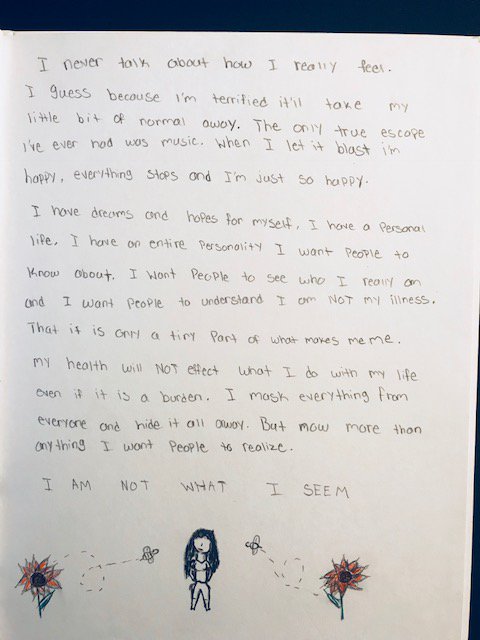 I never talk about how I really feel.
I guess because I'm terrified it'll take my
little bit of normal away. The only true escape
I've ever had was music. When I let it blast i'm
happy, everything stops and I'm just so happy.
I have dreams and hopes for myself. I have a personal
life. I have an entire personality I want people to
know about. I want people to see who I really am
and I want people to understand I am NOT my illness.
That it is only a tiny part of what makes me me.
my health will NOT effect what I do with my life
even if it is a burden. I mask everything from
everyone and hide it all away. But now more than
anything I want people to realize.
I AM NOT WHAT I SEEM